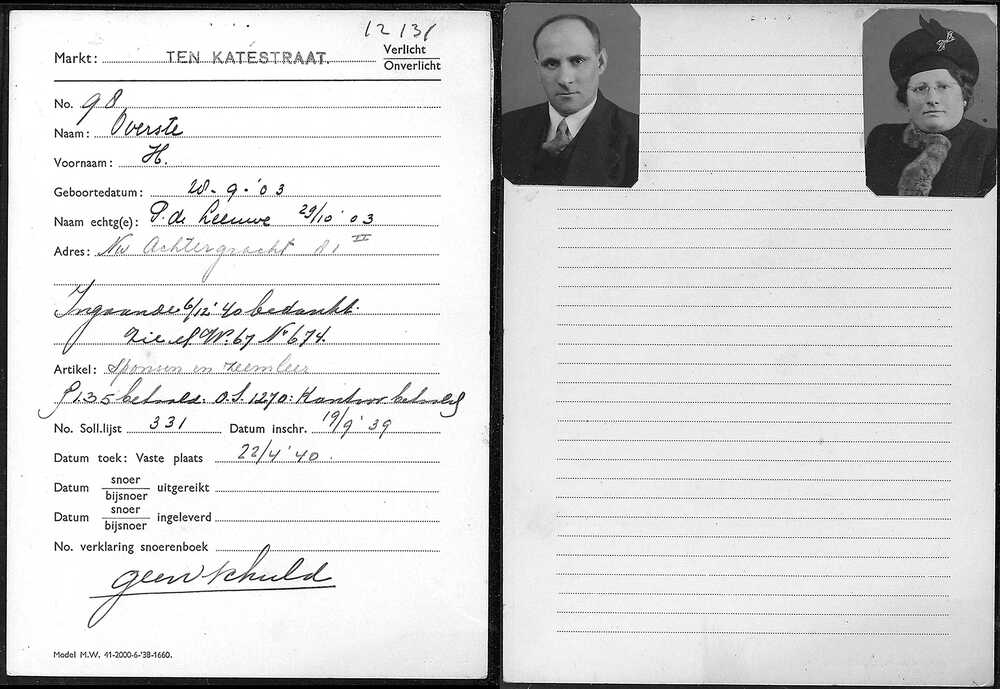 12131
Markt: TEN KATESTRAAT. Verlicht
Onverlicht
No. 98
Naam: Overste
Voornaam: H.
Geboortedatum: 28-9-'03
Naam echtg(e): P. de Leeuwe 29/10 '03
Adres: Nw Achtergracht 81 II
Ingaande 6/12 '40 bedankt.
Zie M.W. 67 No 674.
Artikel: Sponsen en zeemleer
betaald. O.S. 1270: Kantoor betaald
No. Soll.lijst 331 Datum inschr. 19/9 '39
Datum toek: Vaste plaats 22/4 '40.
Datum snoer
bijsnoer uitgereikt
Datum snoer
bijsnoer ingeleverd
No. verklaring snoerenboek
geen schuld
Model M.W. 41-2000-6-'38-1660.